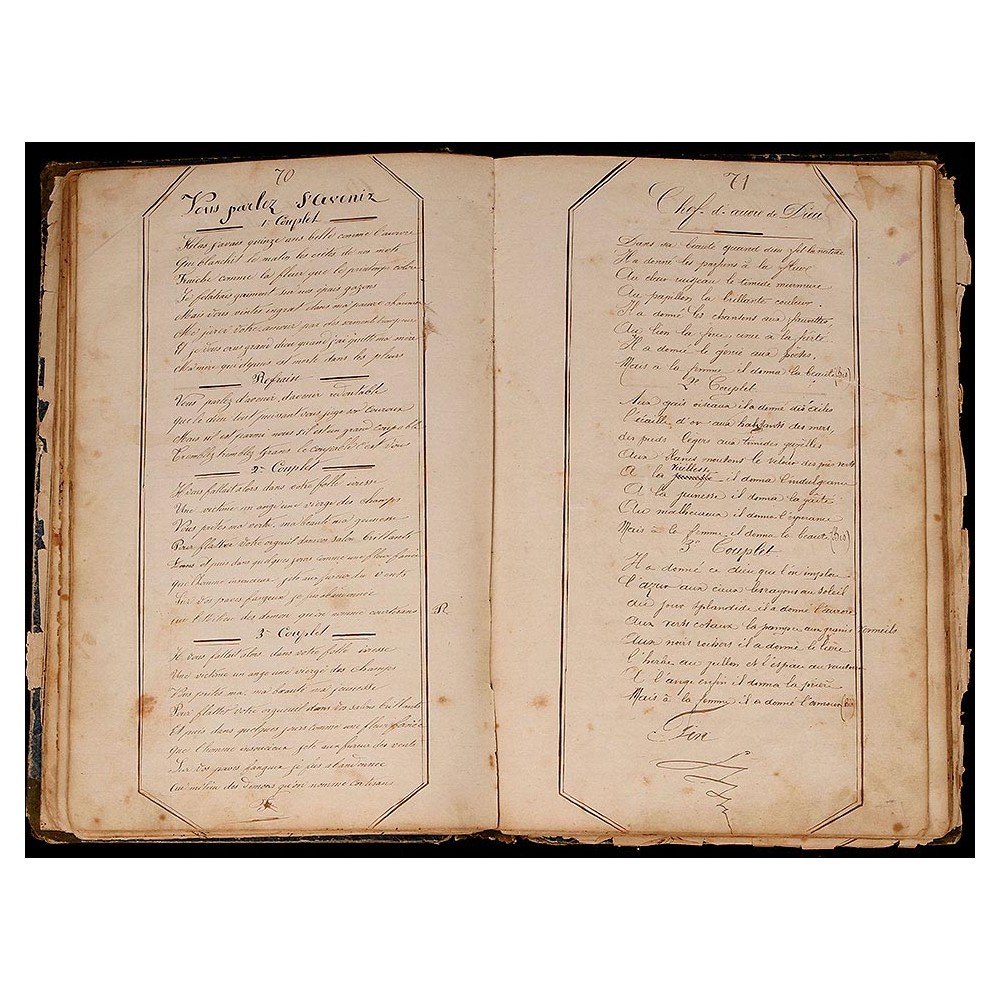 70
Vous parlez d'avenir
1er Couplet
Helas j'avais quinze ans belle comme l'aurore
Qui blanchit le matin les de nos
Fraiche comme la fleur que le printemps colore
Je folatrais gaiment sur nos épais gazons
Mais vous vintes ingrat dans ma pauvre chaumier
Me jurer votre amour par des serment trompeur
Et je vous crus grand dieu quand j'ai quitté ma mère
Ma mère qui depuis est morte dans les pleurs
Refrain
Vous parlez d'avenir d'avenir redoutable
Que le dieu tout puissant vous juge son couroux
Mais s'il est parmi nous s'il est un grand coupable
Tremblez tremblez Grans le coupable c'est vous
2me Couplet
Il vous fallait alors dans votre folle ivresse
Une victime un ange une vierge des champs
Vous prites ma vertu, ma beauté ma jeunesse
Pour flatter votre orgueil dans vos salon brillants
Et puis dans quelques jours comme une fleur fanée
Que l'homme insoucieux jete aux fureur du vents
Sur vos pavés fangeux je fus abandonnée
Au milieu des démon qu'on nomme courtisans
R
3e Couplet
Il vous fallait alors dans votre folle ivresse
Une victime un ange une vierge des champs
Vous prites ma, ma béauté ma jeunesse
Pour flatter votre orgueuil dans vos salons brillants
Et puis dans quelques jours comme une fleur fanée
Que l'homme insoucieux jete aux fureux des vents
Sur vos pavés fangeux je fus abandonnée
Au milieu des démons qu'on nomme cortisans
71
Chef-d-œuvre de Dieu
Dans sa beauté quand dieu fit la nature
Il a donné les parfums à la fleur
Au doux ruisseau le timide murmure
Au papillon la brillante couleur.
Il a donné les chansons aux fauvettes
Au lion la force à la fierté
Il a donné le génie aux poètes,
Mais à la femme il donna la beauté (Bis)
2e Couplet
Aux gais oiseaux il a donné des ailes
L'écaille d'or aux habitants des mers,
des pieds légers aux timides gazelles
Aux blancs moutons le velour des près verts
A la vieillesse il donna l'indulgeance
A la jeunesse il donna la gaîté
Au malheureux il donne l'espérance
Mais à la femme il donna la beauté (Bis)
3e Couplet
Il a donné ce dieu que l'on implore
L'azur aux cieux les rayons au soleil
Au jour splendide il a donné l'aurore
Aux verts coteaux la pampre aux grains vermeils
Aux noirs rochers il a donné le lière
L'herbe au grillon et l'espau au vautour
A l'ange enfin il donna la prière
Mais à la femme il a donné l'amour (Bis)
Fin